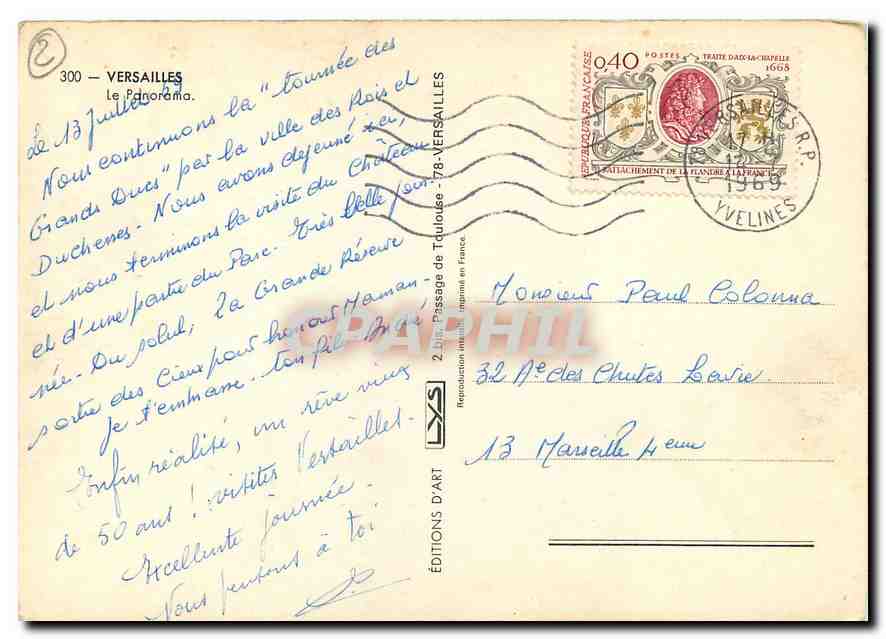 2
300 — VERSAILLES
Le Panorama.
Le 13 Juillet 69
Nous continuons la "tournée des
Grands Ducs" par la ville des Rois et
Duchesses. Nous avons déjeuné ici,
et nous terminons la visite du Château
et d'une partie du Parc. Très belle jour-
née. Du soleil, la Grande Réserve
sortie des Cieux pour honorer Maman.
Je t'embrasse. ton fils André
Enfin réalité, un rêve vieux
de 50 ans ! visiter Versailles.
Excellente journée.
Nous pensons à toi
ÉDITIONS D'ART LYS 2 bis, Passage de Toulouse - 78-VERSAILLES
Reproduction interdite Imprimé en France
RÉPUBLIQUE FRANÇAISE
0,40 POSTES TRAITÉ D'AIX-LA-CHAPELLE
1668
RATTACHEMENT DE LA FLANDRE A LA FRANCE
VERSAILLES R.P.
1969
YVELINES
CPAPHIL
Monsieur Paul Colonna
32 Ae des Chutes Lavie.
13 Marseille 4eme